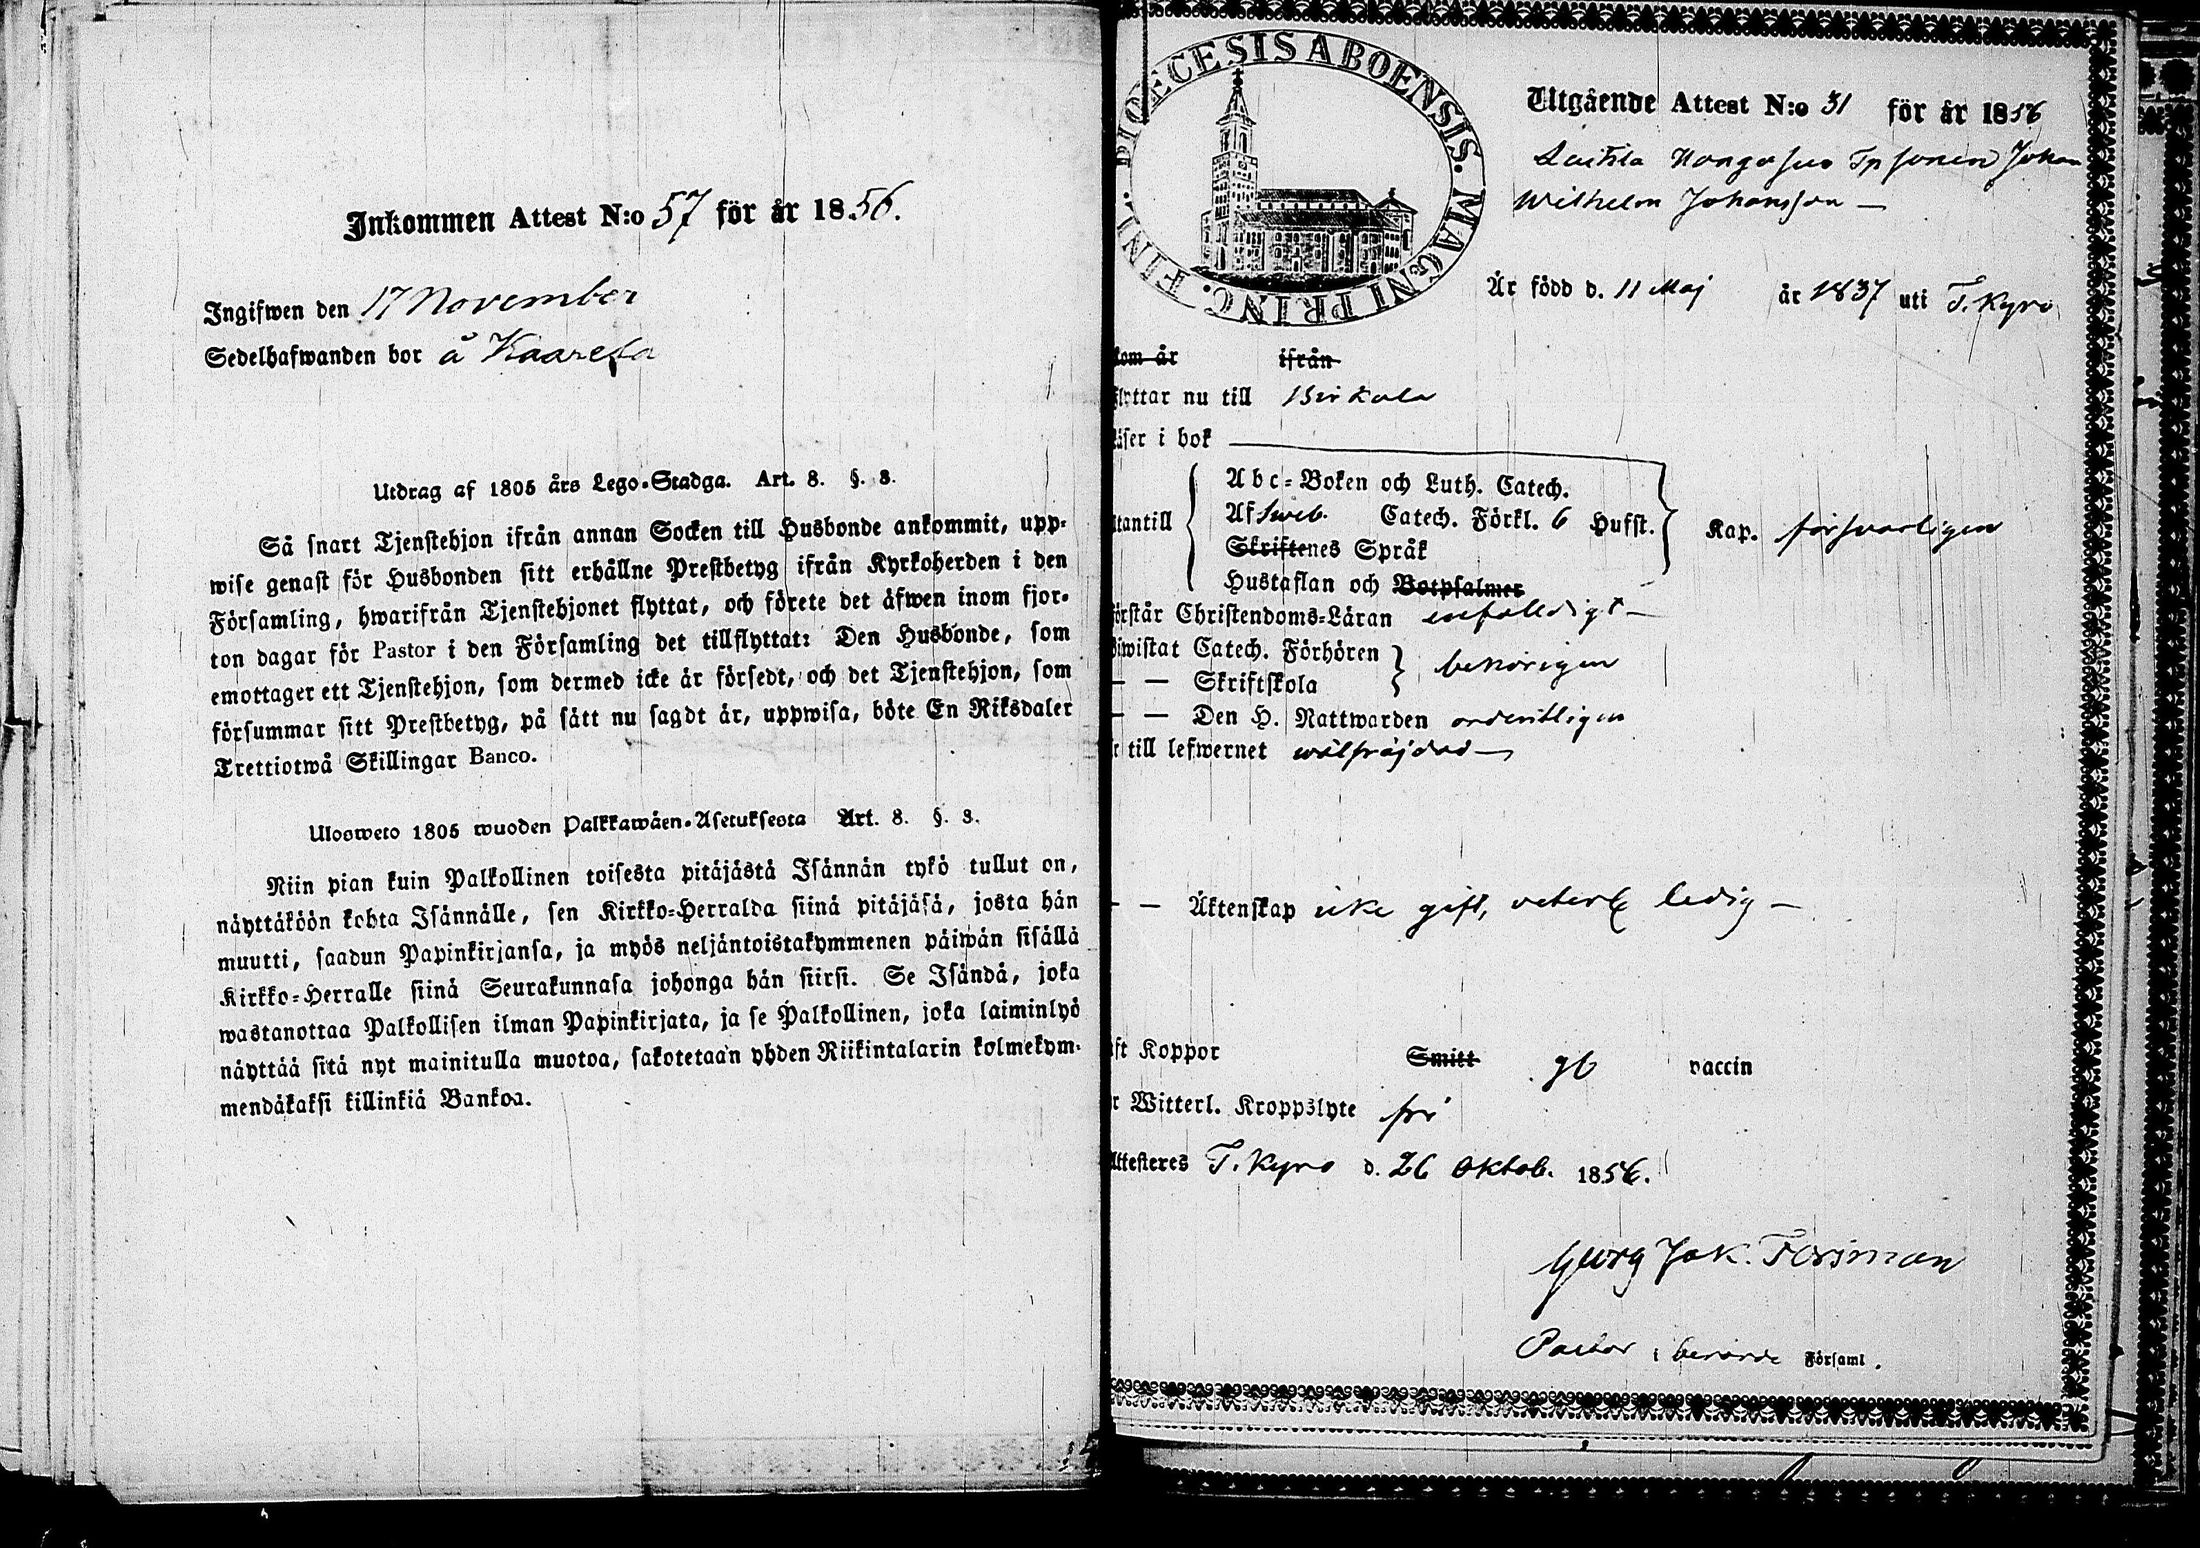 Inkommen Attest N:o 57 för år 1856.
Ingifwen den 17 November
Sedelhafwanden bor å Kaarela
Utdrag af 1805 års Lego-Stadga. Art. 8. §. 3.
Så snart Tjenstehjon ifrån annan Socken till Husbonde ankommit, upp-
wise genast för Husbonden sitt erhållne Prestbetyg ifrån Kyrkoherden i den
Församling, hwarifrån Tjenstehjonet flyttat, och förete det äfwen inom fjor-
ton dagar för Pastor i den Församling det tillflyttat: Den Husbonde, som
emottager ett Tjenstehjon, som dermed icke är försedt, och det Tjenstehjon, som
försummar sitt Prestbetyg, på sätt nu sagdt är, uppwisa, böte En Riksdaler
Trettiotwå Skillingar Banco.
Ulosweto 1805 wuoden Palkkawäen-Asetuksesta Art. 8. §. 3.
Niin pian kuin Palkollinen toisesta pitäjästä Isännän tykö tullut on,
näyttäköön kohta Isännälle, sen Kirkko-Herralda siinä pitäjäsä, josta hän
muutti, saadun Papinkirjansa, ja myös neljäntoistakymmenen päiwän sisällä
Kirkko-Herralle siinä Seurakunnasa johonga hän siirsi. Se Isändä, joka
wastanottaa Palkollisen ilman Papinkirjata, ja se Palkollinen, joka laiminlyö
näyttää sitä nyt mainitulla muotoa, sakotetaan yhden Riikintalarin kolmekym-
mendäkaksi killinkiä Bankoa.
DIOECESIS ABOENSIS. MAGNI PRINC. FINL.
Utgående Attest N:o 31 för år 1856
Johan
Wilhelm Johansson
Är född d. 11 Maj år 1837 uti T. Kyro
kom år ifrån
flyttar nu till Birkala
läser i bok
Abc-Boken och Luth. Catech.
utantill Af Sweb. Catech. Förkl. 6 Hufst. Kap. försvarligen
Skriftenes Språk
Hustaflan och Botpsalmer
förstår Christendoms-Läran enfaldigt
biwistat Catech. Förhören behörigen
— — Skriftskola
— — Den H. Nattwarden ordentligen
är till lefwernet wälfräjdad
— — Äktenskap icke gift, ledig
haft Koppor Smitt gb vaccin
är Witterl. Kroppslyte fri
Attesteres T. Kyro d. 26 Oktob. 1856.
Georg Jak. Forsman
Pastor i berörde Församl.